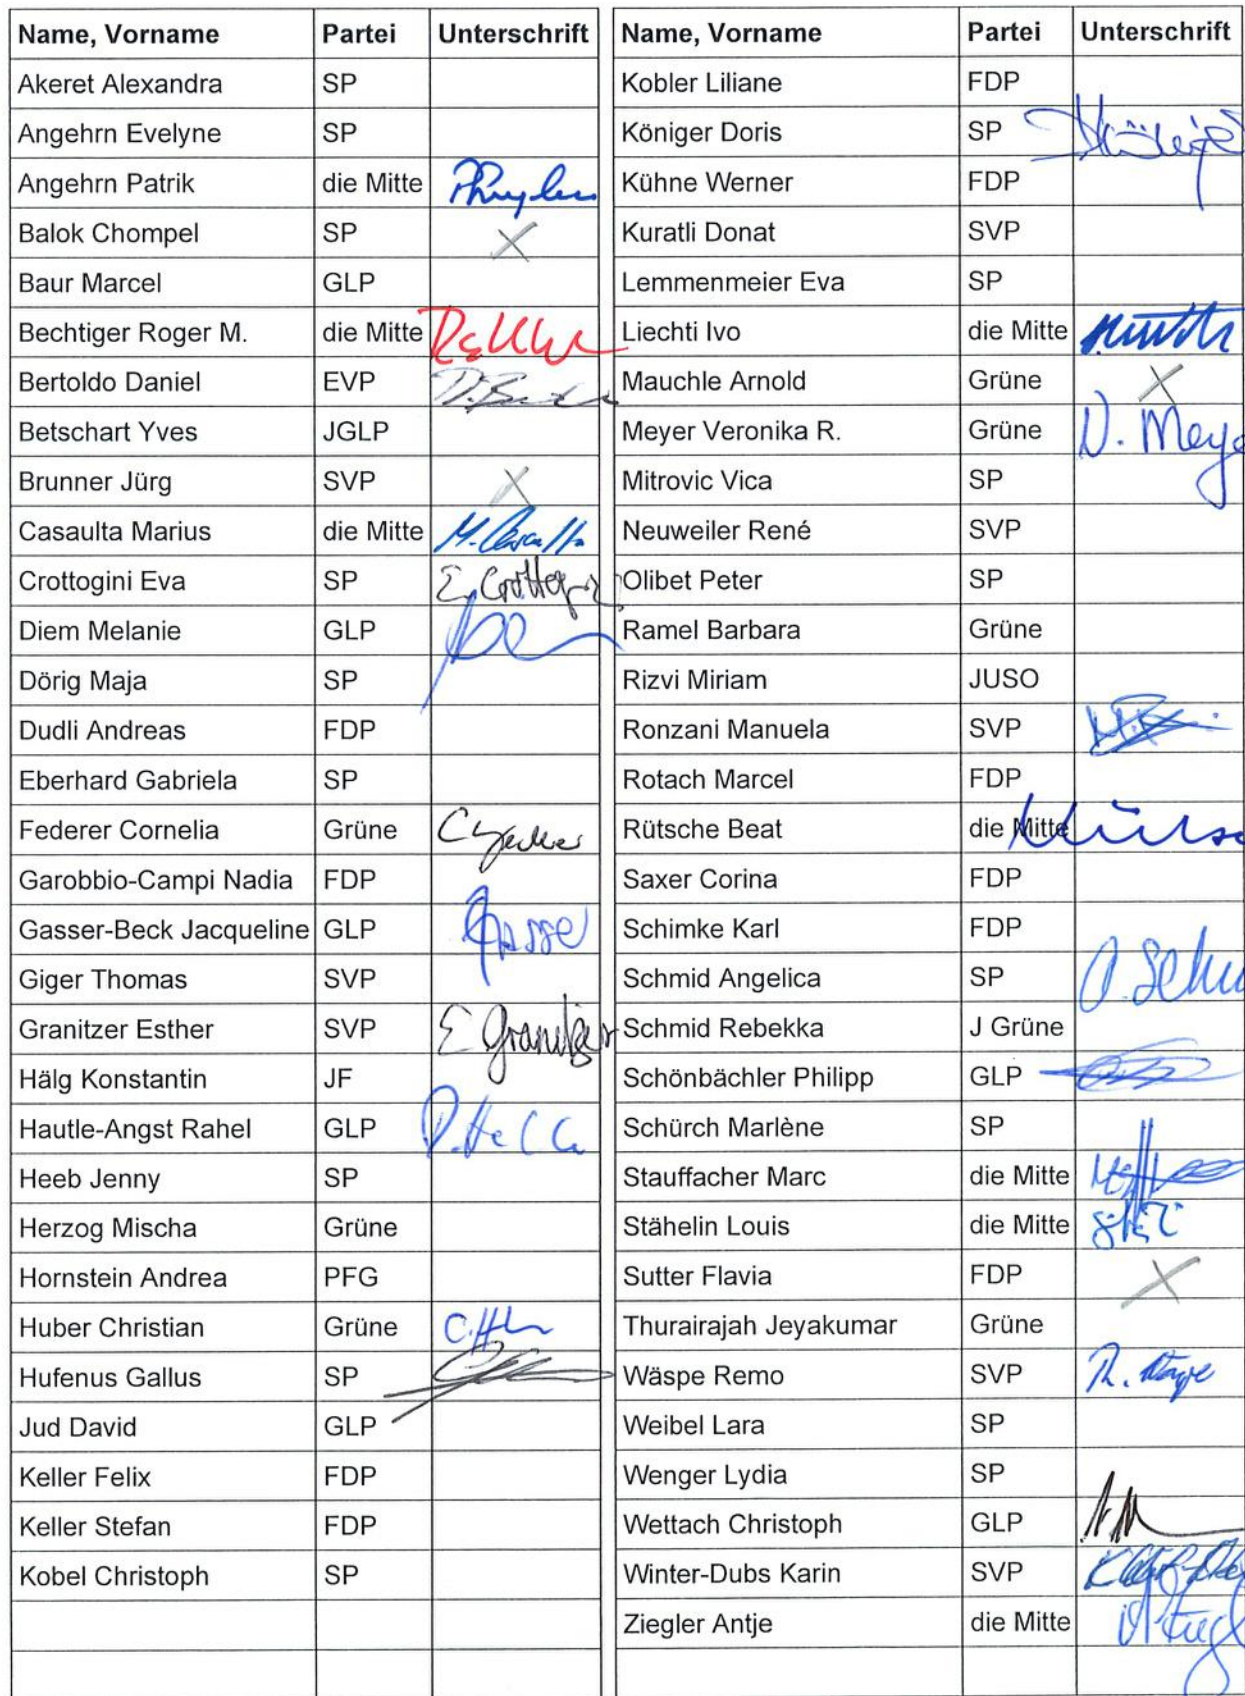 Name, Vorname Partei Unterschrift
Akeret Alexandra SP
Angehrn Evelyne SP
Angehrn Patrik die Mitte
Balok Chompel SP X
Baur Marcel GLP
Bechtiger Roger M. die Mitte
Bertoldo Daniel EVP
Betschart Yves JGLP
Brunner Jürg SVP X
Casaulta Marius die Mitte M. Casaulta
Crottogini Eva SP E. Crottogini
Diem Melanie GLP
Dörig Maja SP
Dudli Andreas FDP
Eberhard Gabriela SP
Federer Cornelia Grüne
Garobbio-Campi Nadia FDP
Gasser-Beck Jacqueline GLP Gasser
Giger Thomas SVP
Granitzer Esther SVP E Granitzer
Hälg Konstantin JF
Hautle-Angst Rahel GLP
Heeb Jenny SP
Herzog Mischa Grüne
Hornstein Andrea PFG
Huber Christian Grüne
Hufenus Gallus SP
Jud David GLP
Keller Felix FDP
Keller Stefan FDP
Kobel Christoph SP
Name, Vorname Partei Unterschrift
Kobler Liliane FDP
Königer Doris SP
Kühne Werner FDP
Kuratli Donat SVP
Lemmenmeier Eva SP
Liechti Ivo die Mitte
Mauchle Arnold Grüne X
Meyer Veronika R. Grüne V. Meye
Mitrovic Vica SP
Neuweiler René SVP
Olibet Peter SP
Ramel Barbara Grüne
Rizvi Miriam JUSO
Ronzani Manuela SVP
Rotach Marcel FDP
Rütsche Beat die Mitte
Saxer Corina FDP
Schimke Karl FDP
Schmid Angelica SP A. Schm
Schmid Rebekka J Grüne
Schönbächler Philipp GLP
Schürch Marlène SP
Stauffacher Marc die Mitte
Stähelin Louis die Mitte
Sutter Flavia FDP X
Thurairajah Jeyakumar Grüne
Wäspe Remo SVP
Weibel Lara SP
Wenger Lydia SP
Wettach Christoph GLP
Winter-Dubs Karin SVP
Ziegler Antje die Mitte